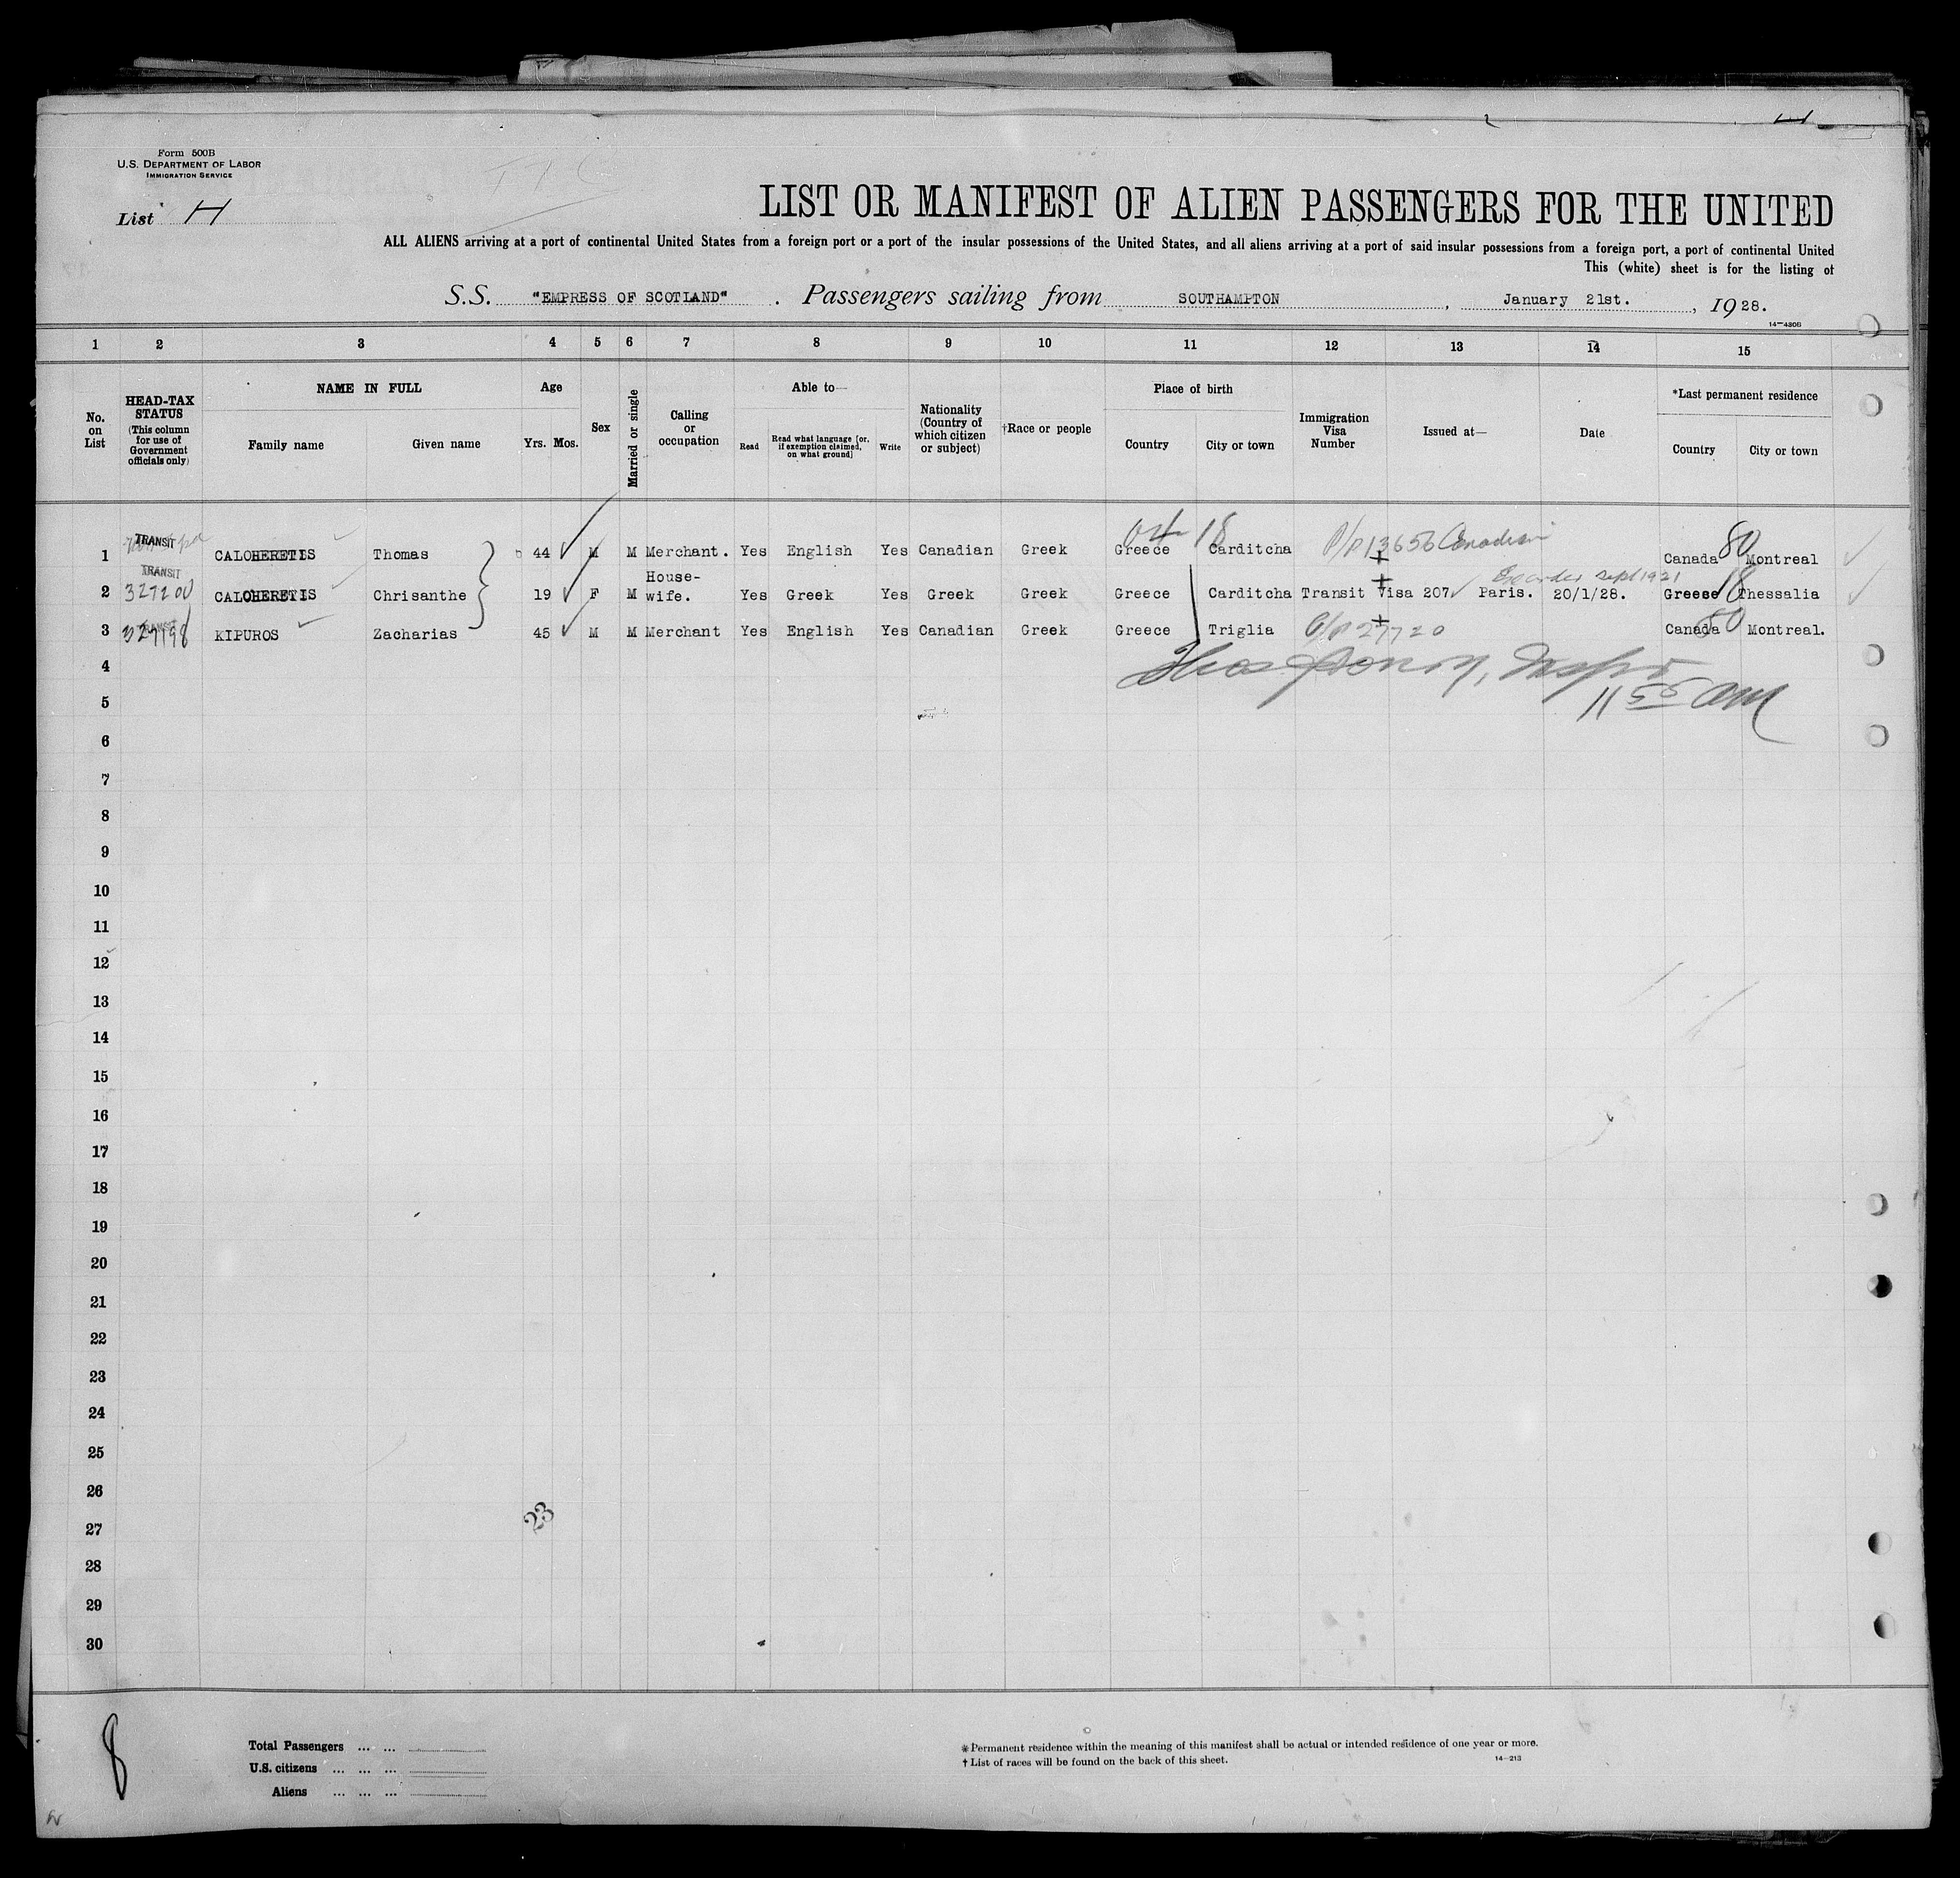 Form 500B
U.S. DEPARTMENT OF LABOR
IMMIGRATION SERVICE
List H
LIST OR MANIFEST OF ALIEN PASSENGERS FOR THE UNITED
ALL ALIENS arriving at a port of continental United States from a foreign port or a port of the insular possessions of the United States, and all aliens arriving at a port of said insular possessions from a foreign port, a port of continental United
This (white) sheet is for the listing of
S.S. "EMPRESS OF SCOTLAND" . Passengers sailing from SOUTHAMPTON, January 21st., 1928.
14—430B
1 2 3 4 5 6 7 8 9 10 11 12 13 14 15
No. on List
HEAD-TAX STATUS (This column for use of Government officials only)
NAME IN FULL
Family name Given name
Age
Yrs. Mos.
Sex
Married or single
Calling or occupation
Able to—
Read Read what language [or, if exemption claimed, on what ground] Write
Nationality (Country of which citizen or subject)
†Race or people
Place of birth
Country City or town
Immigration Visa Number
Issued at—
Date
*Last permanent residence
Country City or town
1 TRANSIT CALOHERETIS Thomas 44 M M Merchant. Yes English Yes Canadian Greek Greece Carditcha P/P 13656 Canadian Canada 80 Montreal
2 TRANSIT 327200 CALOHERETIS Chrisanthe 19 F M House-wife. Yes Greek Yes Greek Greek Greece Carditcha Transit Visa 207 Paris. 20/1/28. Greese 18 Thessalia
3 TRANSIT 327198 KIPUROS Zacharias 45 M M Merchant Yes English Yes Canadian Greek Greece Triglia 27720 Canada 80 Montreal.
4
11 55 am
5
6
7
8
9
10
11
12
13
14
15
16
17
18
19
20
21
22
23
24
25
26
27
23
28
29
30
8
Total Passengers ... ...
U.S. citizens ... ... ...
Aliens ... ... ...
* Permanent residence within the meaning of this manifest shall be actual or intended residence of one year or more.
† List of races will be found on the back of this sheet.
14—213